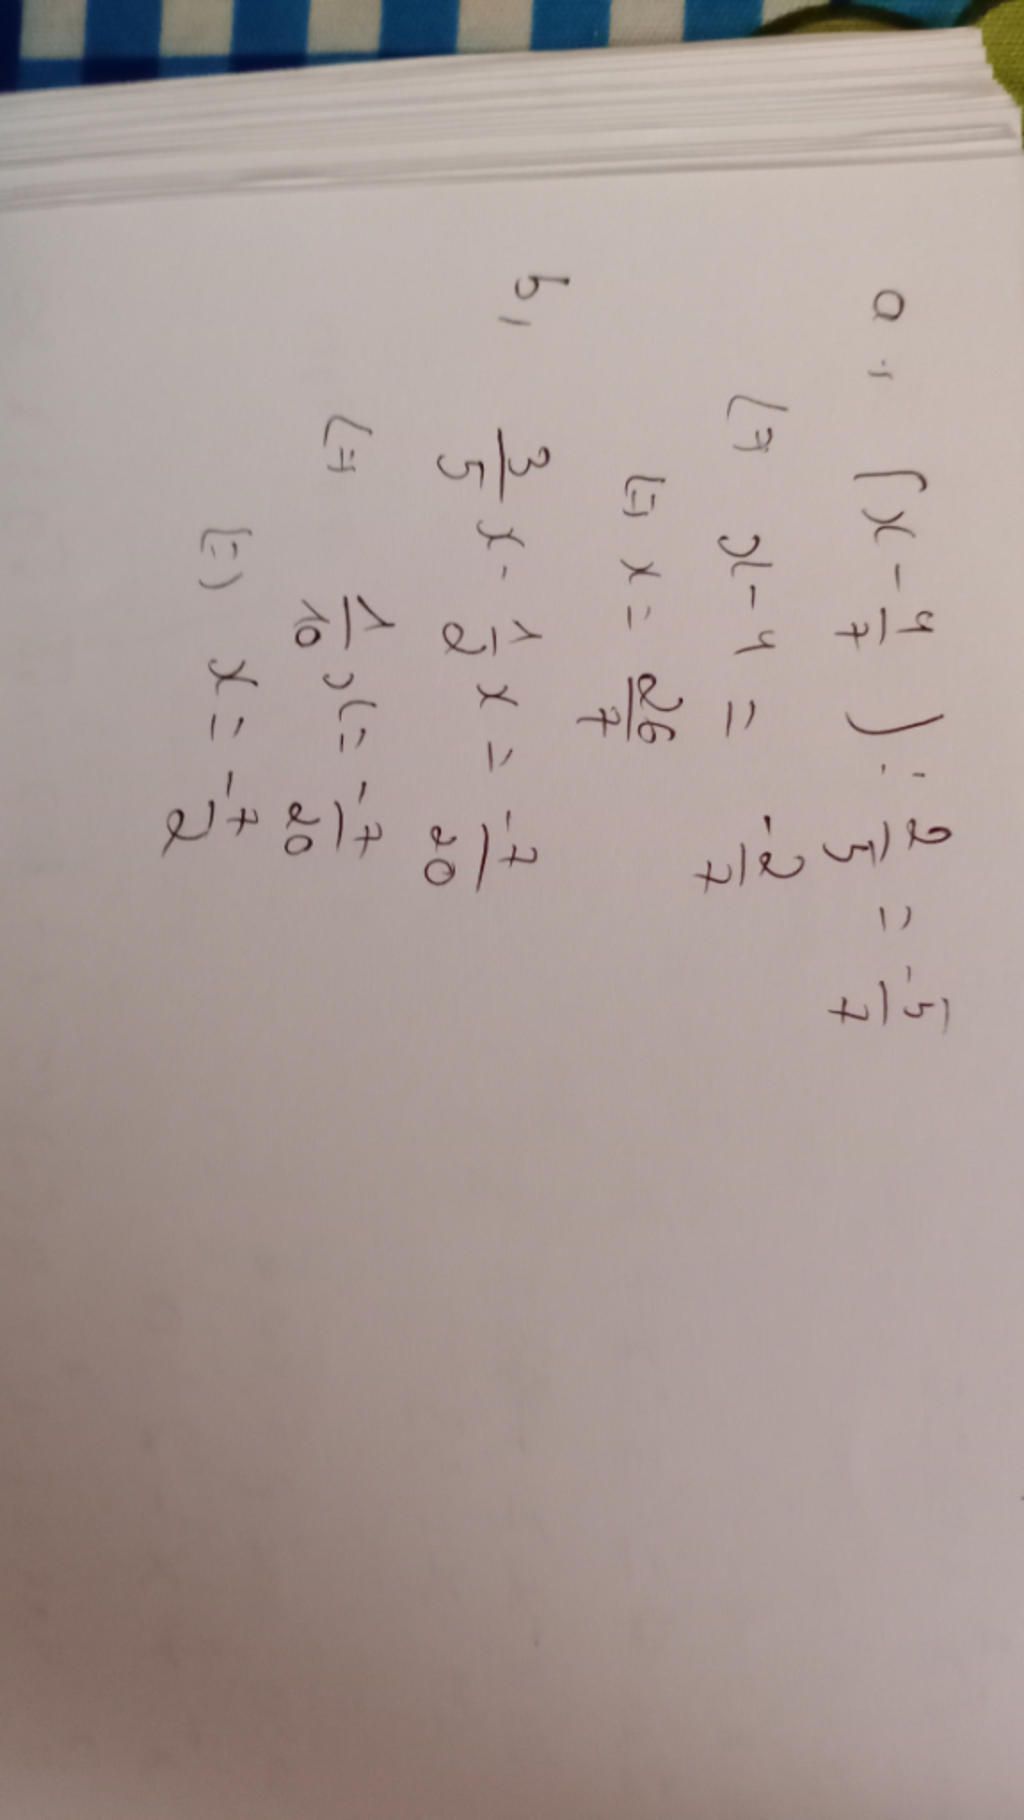 a, (x - 4/7) : 2/5 = -5/7
<=> x - 4 = -2/7
<=> x = 26/7
b, 3/5 x - 1/2 x = -7/20
<=> 1/10 x = -7/20
<=> x = -7/2